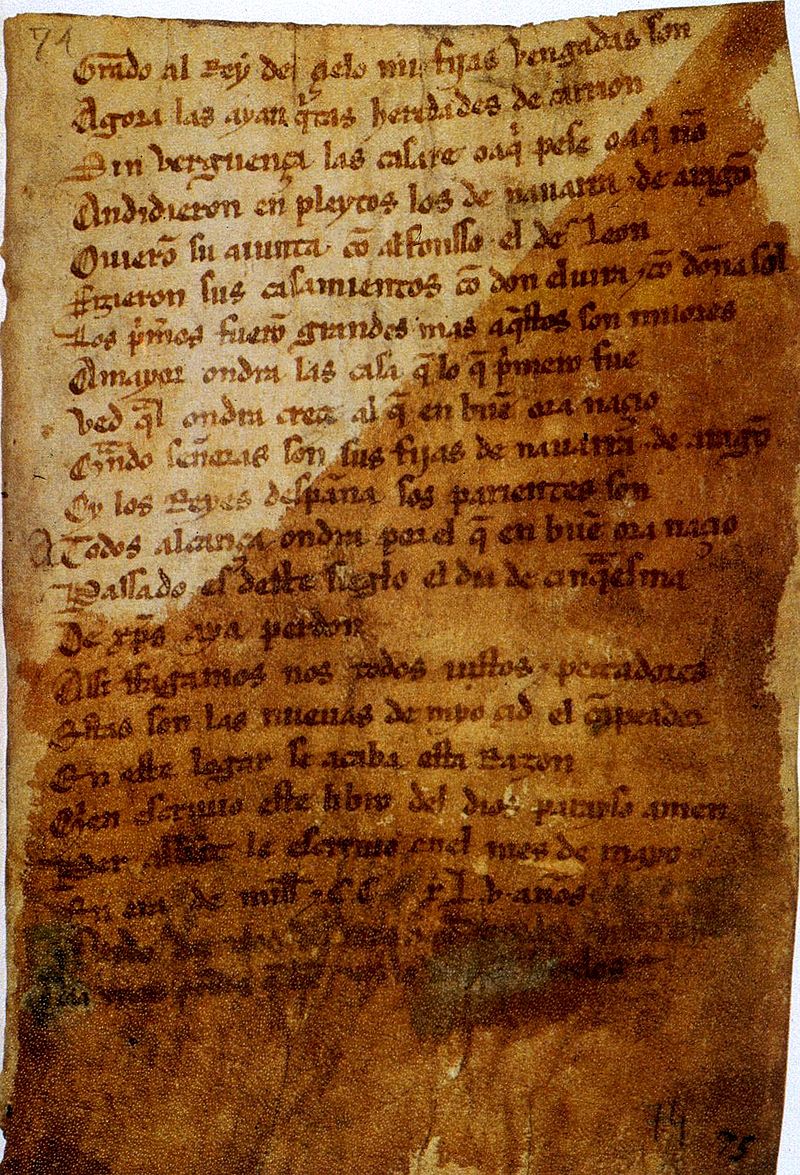 74
Grado al Rey de çielo mis fijas vengadas son
Agora las ayan q̃tas heredades de carrion
Sin verguença las casare o aq̃ pese o aq̃ nõ
Andidieron en pleytos los de nauarra ⁊ de aragõ
Ouierõ su aiunta cõ alfonsso el de Leon
Fizieron sus casamientos cõ don eluira ⁊ cõ doña sol
Los p̃meros fuerõ grandes mas aq̃stos son miiores
A mayor ondra las casa q̃ lo q̃ p̃mero fue
Ved q̃l ondra creçe al q̃ en buẽ ora naçio
Q̃ndo señoras son sus fijas de nauarra ⁊ de aragõ
Oy los Reyes despaña sos parientes son
A Todos alcança ondra por el q̃ en buẽ ora naçio
Passado es deste sieglo el dia de cinq̃esma
De xp̃s aya perdon
Assi ffagamos nos todos iustos ⁊ peccadores
Estas son las nueuas de myo çid el cãpeador
En este logar se acaba esta Razon
Quien escriuio este libro del dios parayso amen
Per abbat le escriuio en el mes de mayo
En era de mill ⁊ C.C. xL.v. años
74
75